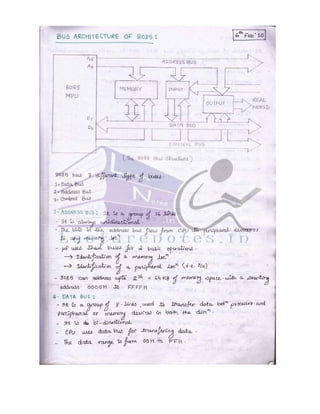 BUS ARCHITECTURE OF 8085 :
6th Feb'10
ADDRESS BUS
8085
MPU
MEMORY
INPUT
OUTPUT
REAL
WORLD
DATA BUS
CONTROL BUS
(The 8085 Bus Structure)
8085 has 3 different type of buses
1- Data Bus
2- Address Bus
3- Control Bus
1- ADDRESS BUS : It is a group of 16 lines
- It is always unidirectional.
- The bits of the address bus flow from CPU to peripheral devices
or any memory locn
- μP uses these buses for 2 basic operations
→ Identification of a memory locn
→ Identification of a peripheral locn (i.e. I/O)
- 8085 can address upto 2^16 = 64 KB of memory space with a starting
address 0000H to FFFFH.
2- DATA BUS :
- It is a group of 8-lines used to transfer data betn processor and
peripheral or memory devices in both the dirn.
- It is bi-directional
- CPU uses data bus for transferring data.
- The data range is from 00H to FFH.